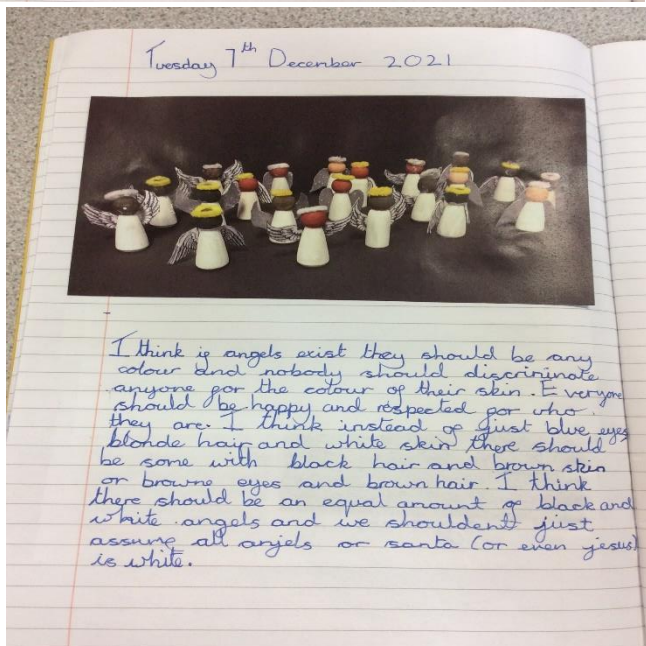 Tuesday 7th December 2021
I think if angels exist they should be any
colour and nobody should discriminate
anyone for the colour of their skin. Everyone
should be happy and respected for who
they are. I think instead of just blue eyes
blonde hair and white skin there should
be some with black hair and brown skin
or browne eyes and brown hair. I think
there should be an equal amount of black and
white angels and we shouldent just
assume all anjels or santa (or even jesus)
is white.